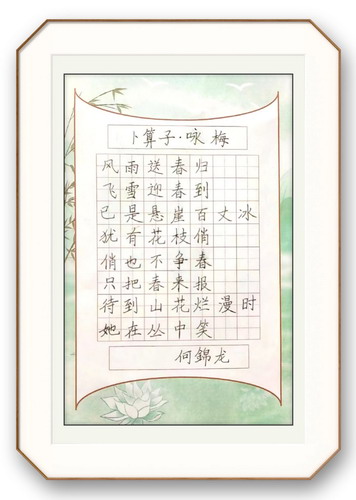 卜算子·咏梅
风雨送春归
飞雪迎春到
已是悬崖百丈冰
犹有花枝俏
俏也不争春
只把春来报
待到山花烂漫时
她在丛中笑
何錦龙